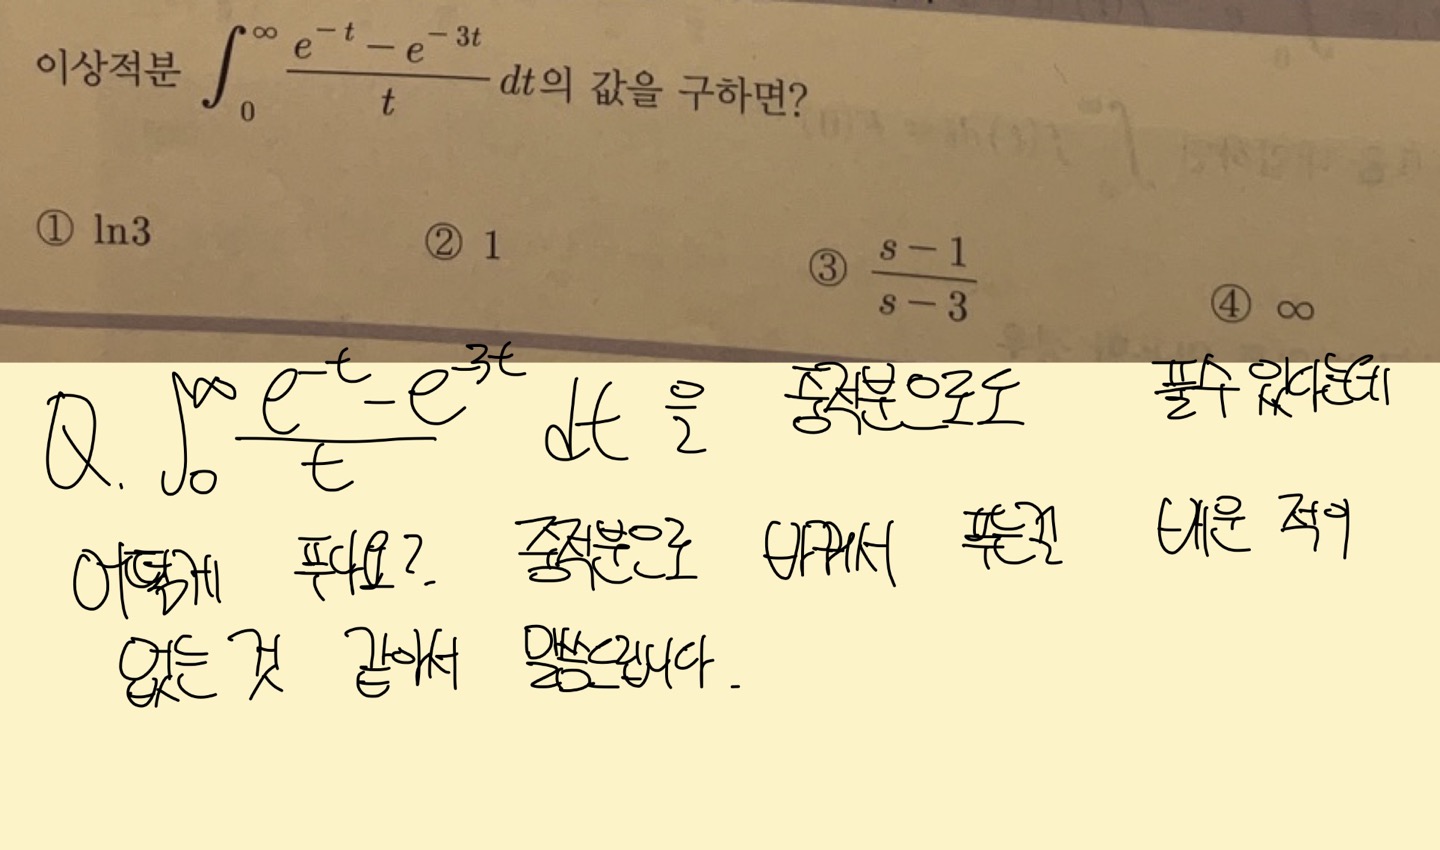 이상적분 ∫₀^∞ (e^{-t} - e^{-3t})/t dt의 값을 구하면?
① ln3 ② 1 ③ (s-1)/(s-3) ④ ∞
Q. ∫₀^∞ (e^{-t} - e^{-3t})/t dt 을 중적분으로도 풀수 있다는데
어떻게 푸나요? 중적분으로 바꿔서 푸는걸 배운 적이
없는 것 같아서 말씀드립니다.